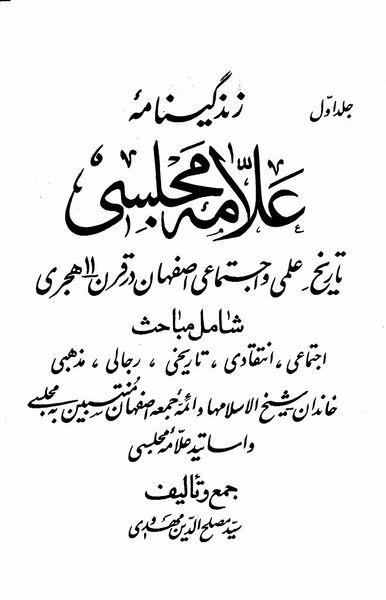 جلد اوّل
زندگینامهٔ
علاّمه مجلسی
تاریخ علمی و اجتماعی اصفهان در قرن ۱۱ هجری
شامل مباحث
اجتماعی ، انتقادی ، تاریخی ، رجالی ، مذهبی
خاندان شیخ الاسلامها و ائمهٔ جمعه اصفهان منتسبین به مجلسی
و اساتید علاّمه مجلسی
جمع و تألیف
سیّد مصلح الدّین مهدوی